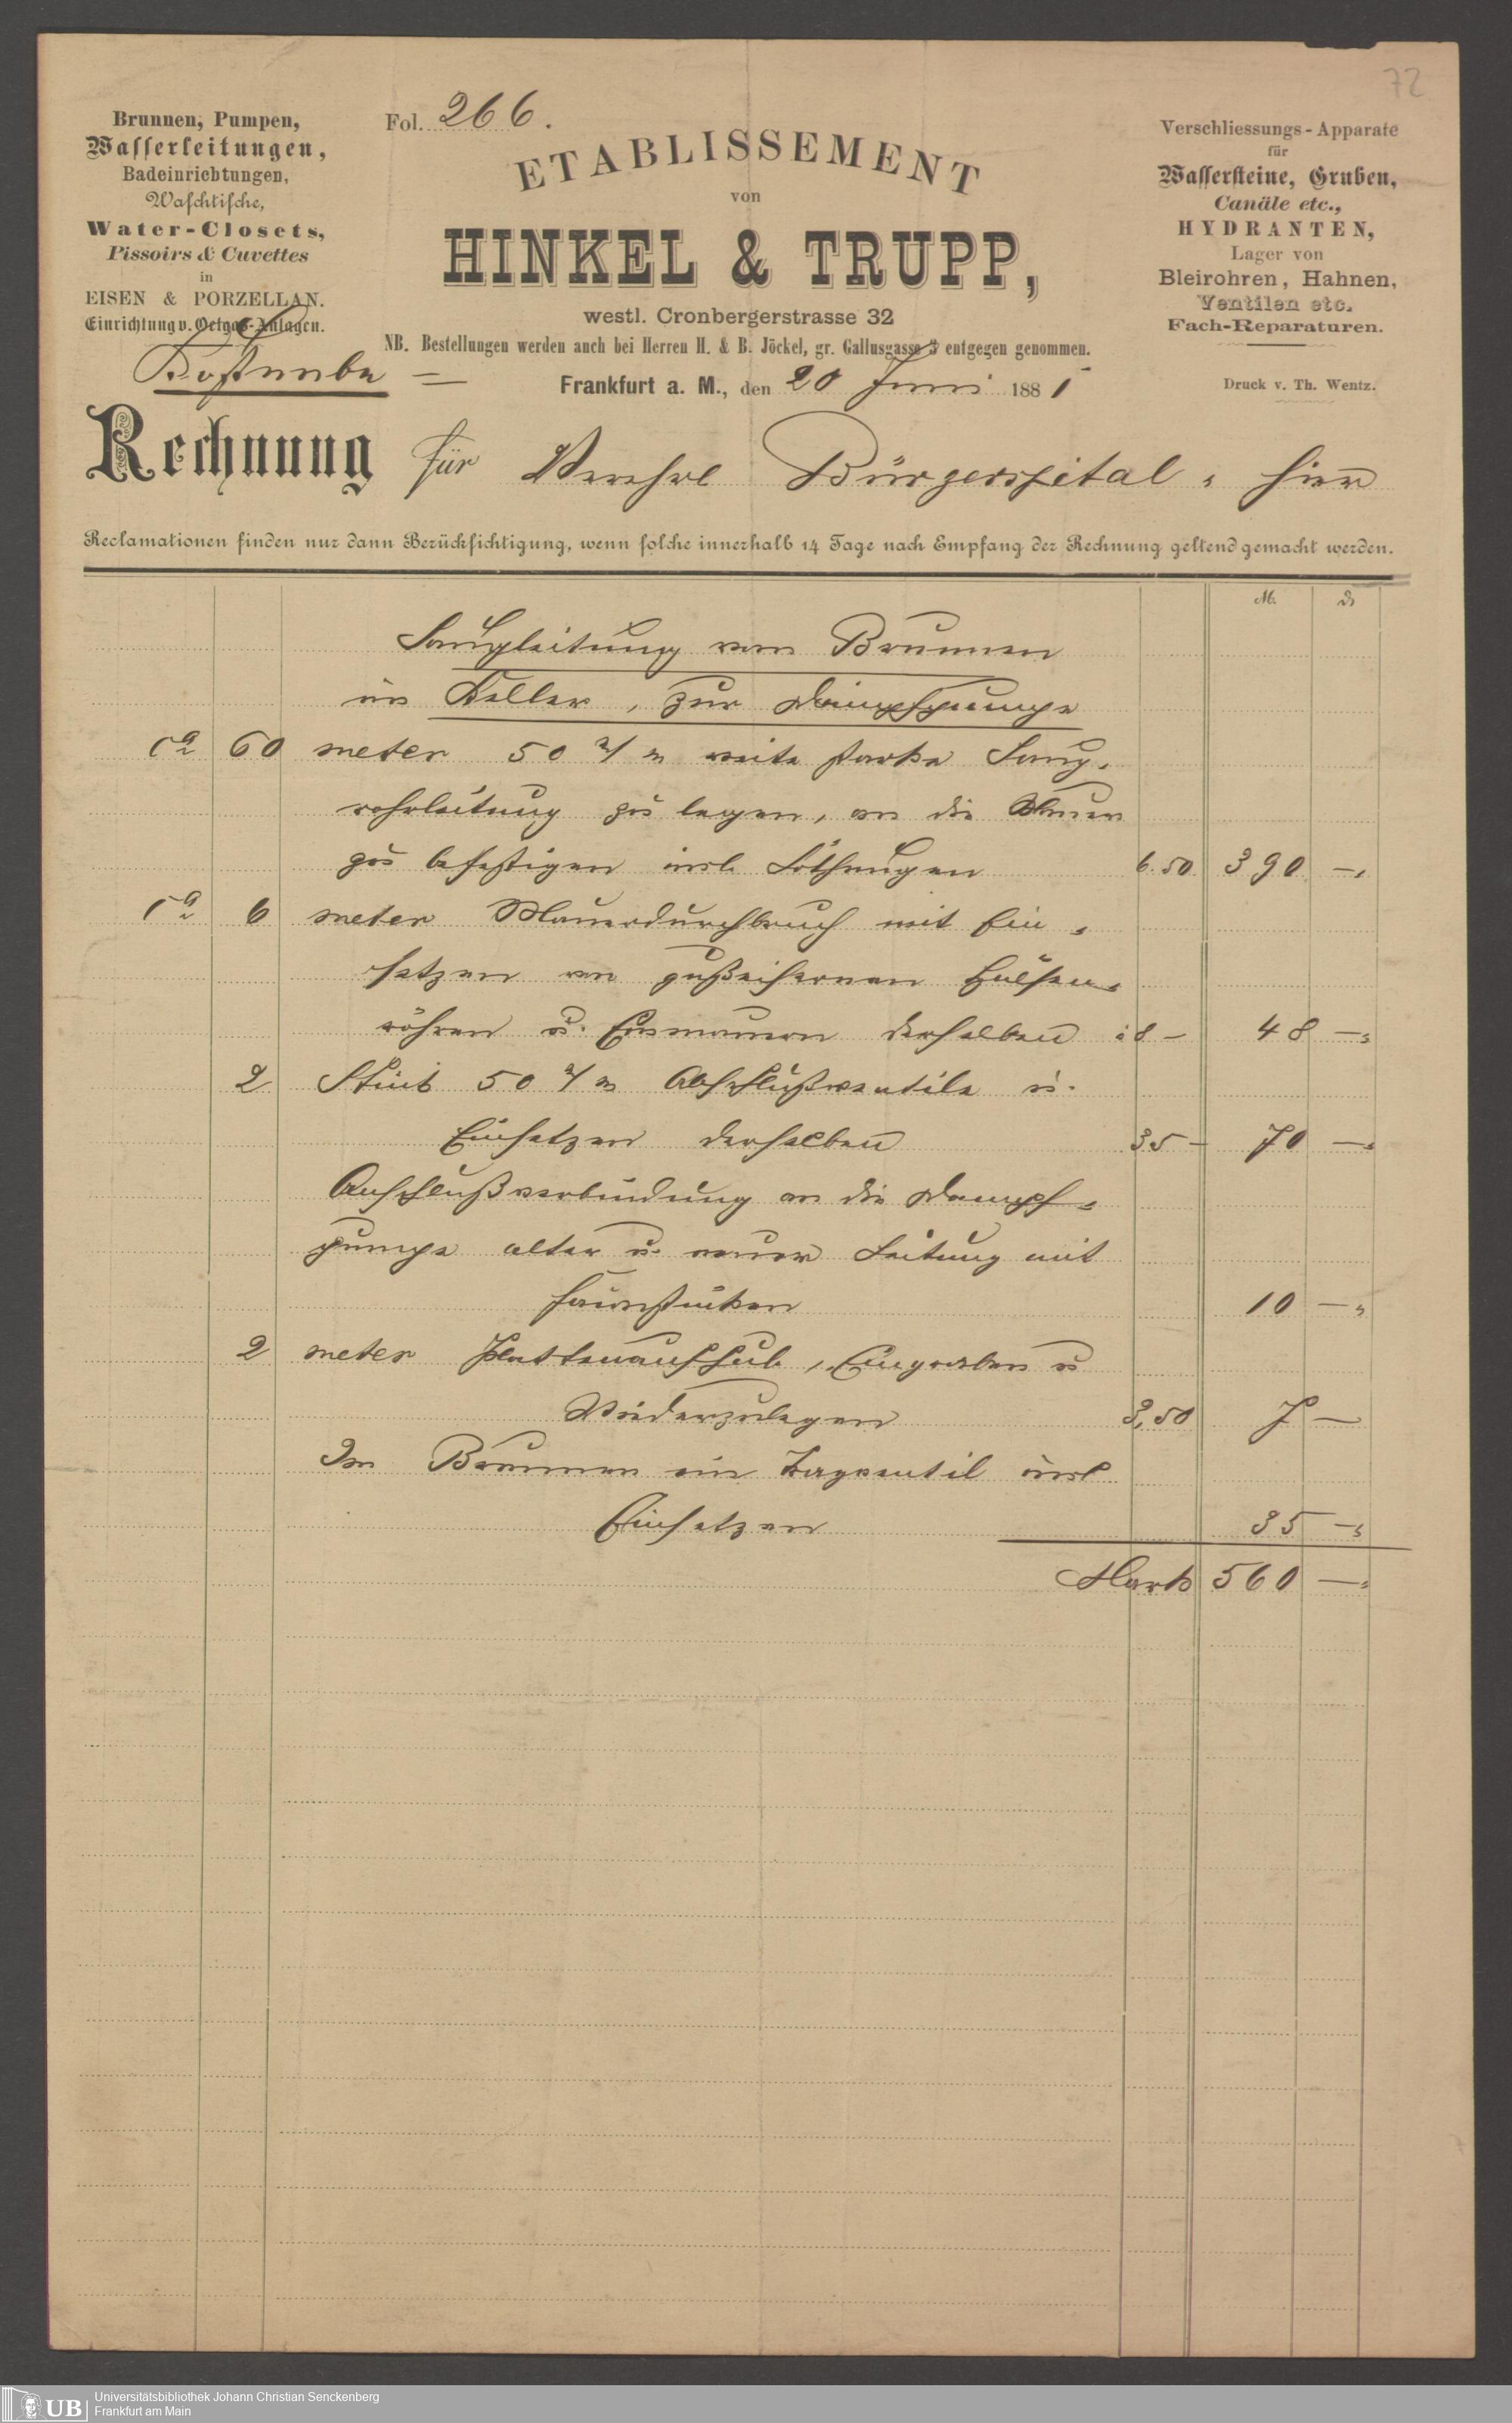 72
Brunnen, Pumpen,
Wasserleitungen,
Badeinrichtungen,
Waschtische,
Water-Closets,
Pissoirs & Cuvettes
in
EISEN & PORZELLAN.
Einrichtung v. Oelgas-Anlagen.
Fol. 266.
ETABLISSEMENT
von
HINKEL & TRUPP,
westl. Cronbergerstrasse 32
NB. Bestellungen werden auch bei Herren H. & B. Jöckel, gr. Gallusgasse 5 entgegen genommen.
Verschliessungs-Apparate
für
Wassersteine, Gruben,
Canäle etc.,
HYDRANTEN,
Lager von
Bleirohren, Hahnen,
Ventilen etc.
Fach-Reparaturen.
Druck v. Th. Wentz.
Frankfurt a. M., den 20 Juni 1881
Rechnung für Verehrl Bürgerspital, hier
Reclamationen finden nur dann Berücksichtigung, wenn solche innerhalb 14 Tage nach Empfang der Rechnung geltend gemacht werden.
M. ₰
Saugleitung vom Brunnen
im Keller, zur Dampfpumpe
ca 60 meter 50 m/m weite starke Saug-
rohrleitung zu legen, an die Mauer
zu befestigen incl. Löthungen 6.50 390 —
ca 6 meter Mauerdurchbruch mit Ein-
setzen von gußeisernen Hülsen-
röhren u. Einmauern derselben à 8 — 48 —
2 Stück 50 m/m Abschlußventile u.
Einsetzen derselben 35 — 70 —
Anschlußverbindung an die Dampf-
pumpe alter u. neuer Leitung mit
Façonstücken 10 —
2 meter Plattenaufhub, Eingraben u
Wiederzulegen 3,50 7 —
Im Brunnen ein Sagventil incl
Einsetzen 35 —
Mark 560 —
UB
Universitätsbibliothek Johann Christian Senckenberg
Frankfurt am Main